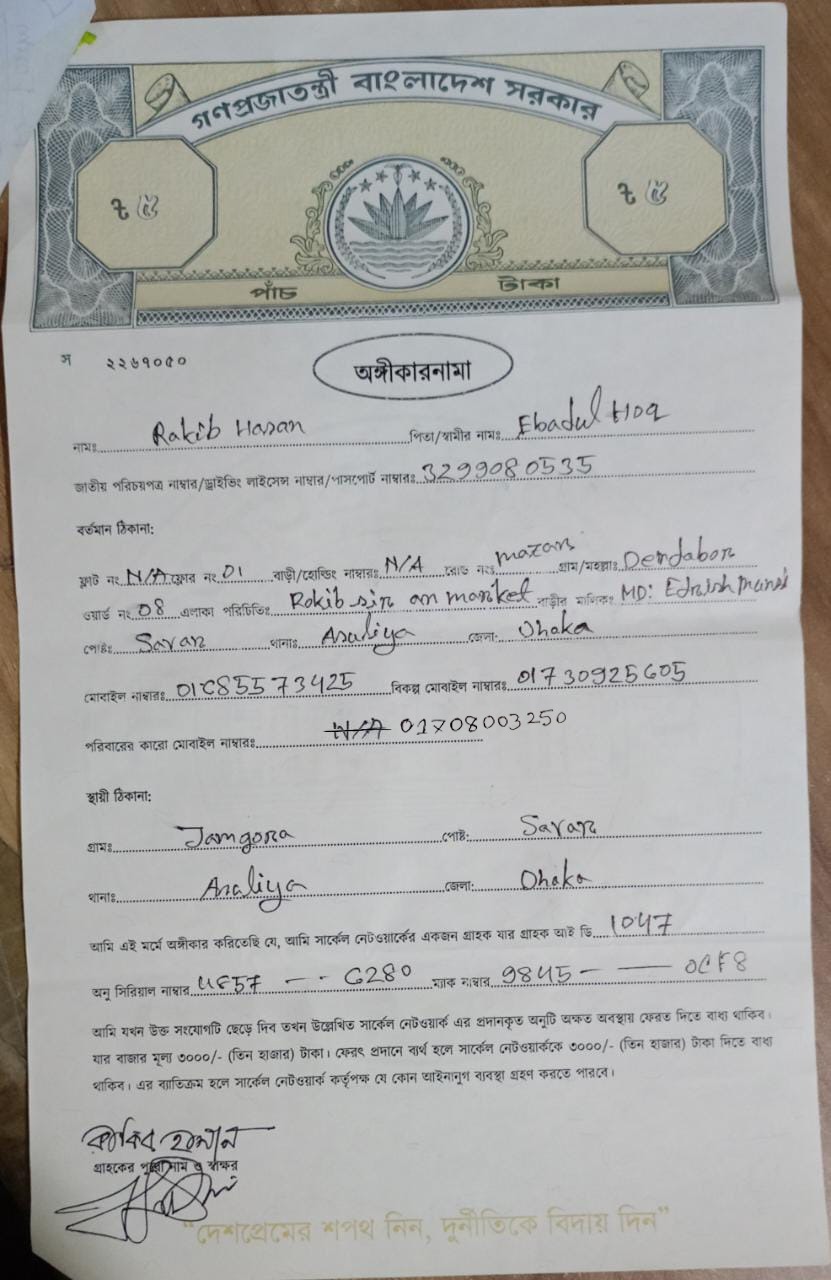 গণপ্রজাতন্ত্রী বাংলাদেশ সরকার
৳ ৫ ৳ ৫
পাঁচ টাকা
স ২২৬৭০৫০
অঙ্গীকারনামা
নামঃ Rakib Hasan পিতা/স্বামীর নামঃ Ebadul Hoq
জাতীয় পরিচয়পত্র নাম্বার/ড্রাইভিং লাইসেন্স নাম্বার/পাসপোর্ট নাম্বারঃ 3299080535
বর্তমান ঠিকানা:
ফ্লাট নং N/A ফ্লোর নং 01 বাড়ী/হোল্ডিং নাম্বারঃ N/A রোড নংঃ mazar গ্রাম/মহল্লাঃ Dendabor
ওয়ার্ড নং 08 এলাকা পরিচিতিঃ Rokib sir an market বাড়ীর মালিকঃ MD: Edrish
পোষ্টঃ Savar থানাঃ Asuliya জেলা: Dhaka
মোবাইল নাম্বারঃ বিকল্প মোবাইল নাম্বারঃ 01730925605
পরিবারের কারো মোবাইল নাম্বারঃ N/A 01708003250
স্থায়ী ঠিকানা:
গ্রামঃ Jamgora পোষ্ট: Savar
থানাঃ Asaliya জেলা: Dhaka
আমি এই মর্মে অঙ্গীকার করিতেছি যে, আমি সার্কেল নেটওয়ার্কের একজন গ্রাহক যার গ্রাহক আই ডি 1047
অনু সিরিয়াল নাম্বার -- 6280 ম্যাক নাম্বার 9845 - — 0CF8
আমি যখন উক্ত সংযোগটি ছেড়ে দিব তখন উল্লেখিত সার্কেল নেটওয়ার্ক এর প্রদানকৃত অনুটি অক্ষত অবস্থায় ফেরত দিতে বাধ্য থাকিব।
যার বাজার মূল্য ৩০০০/- (তিন হাজার) টাকা। ফেরৎ প্রদানে ব্যর্থ হলে সার্কেল নেটওয়ার্ককে ৩০০০/- (তিন হাজার) টাকা দিতে বাধ্য
থাকিব। এর ব্যতিক্রম হলে সার্কেল নেটওয়ার্ক কর্তৃপক্ষ যে কোন আইনানুগ ব্যবস্থা গ্রহণ করতে পারবে।
রাকিব হাসান
গ্রাহকের পুরো নাম ও স্বাক্ষর
“দেশপ্রেমের শপথ নিন, দুর্নীতিকে বিদায় দিন”